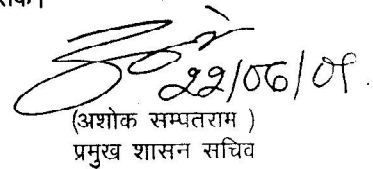 22/06/09.
(अशोक सम्पतराम )
प्रमुख शासन सचिव